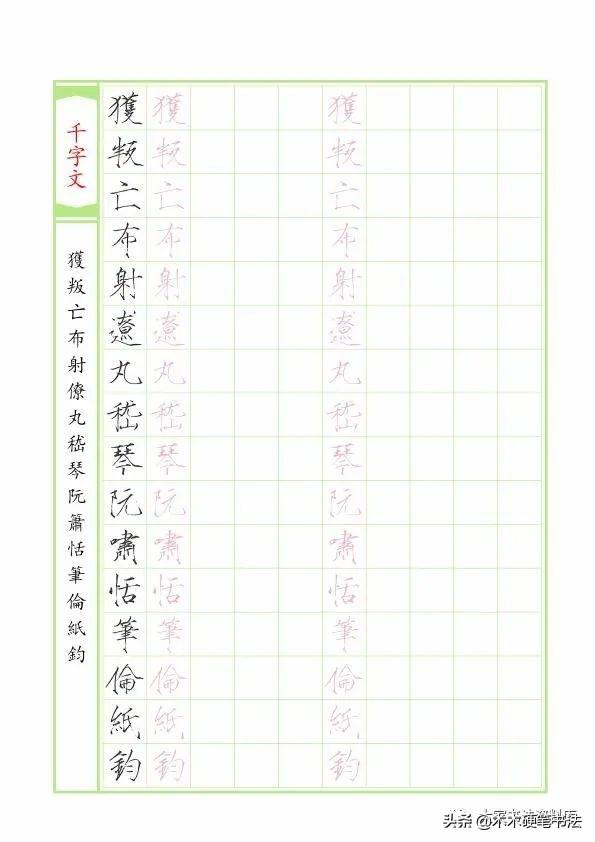 千字文
獲叛亡布射僚丸嵇琴阮簫恬筆倫紙鈞
獲叛亡布射遼丸嵇琴阮嘯恬筆倫紙鈞
獲叛亡布射遼丸嵇琴阮嘯恬筆倫紙鈞
獲叛亡布射遼丸嵇琴阮嘯恬筆倫紙鈞
头条 @木木硬笔书法